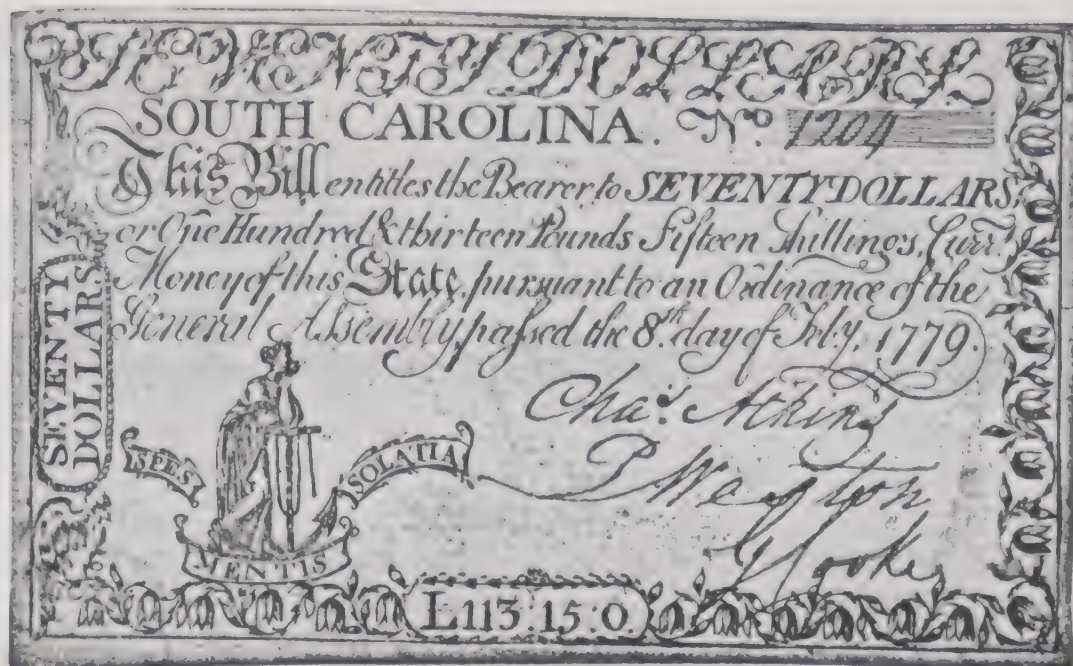 SEVENTY DOLLARS
SOUTH CAROLINA. No. 1204
This Bill entitles the Bearer to SEVENTY DOLLARS,
or One Hundred & thirteen Pounds Fifteen Shillings, Curr.t
Money of this State, pursuant to an Ordinance of the
General Assembly, passed the 8.th day of Feb.y, 1779.
SEVENTY
DOLLARS
Cha.s Atkins
P Weston
SPES
SOLATIA
MENTIS
L113:15:0